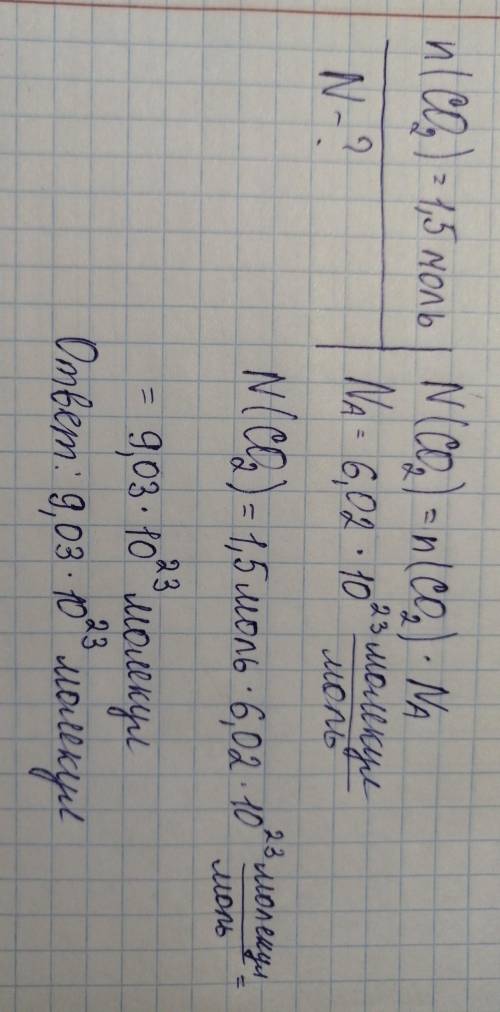 n(CO₂) = 1,5 моль
N - ?
N(CO₂) = n(CO₂) · Nₐ
Nₐ = 6,02 · 10²³ молекул/моль
N(CO₂) = 1,5 моль · 6,02 · 10²³ молекул/моль =
= 9,03 · 10²³ молекул
Ответ: 9,03 · 10²³ молекул